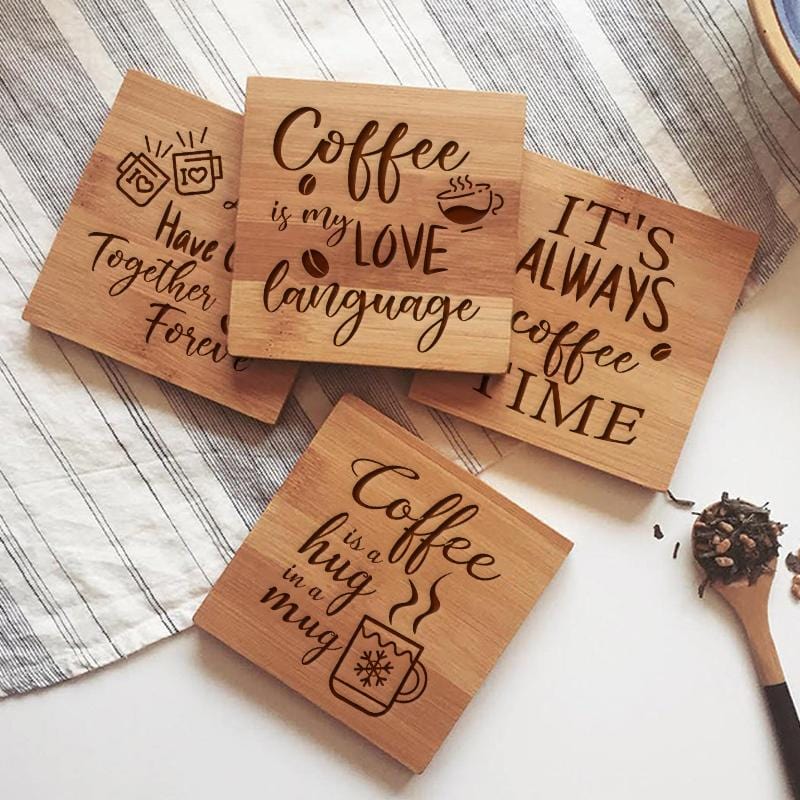 I
I
Have
Together
Foreve
Coffee
is my LOVE
language
IT'S
ALWAYS
coffee
TIME
Coffee
is a
hug
in a
mug